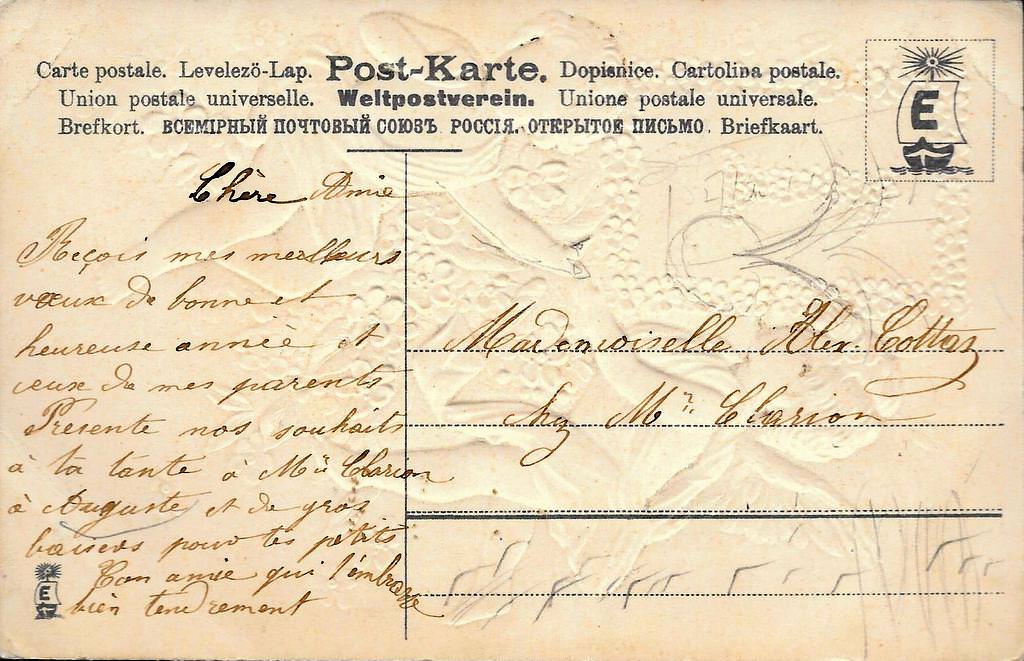 Carte postale. Levelezö-Lap. Post-Karte. Dopisnice. Cartolina postale.
Union postale universelle. Weltpostverein. Unione postale universale.
Brefkort. ВСЕМІРНЫЙ ПОЧТОВЫЙ СОЮЗЪ РОССІЯ. ОТКРЫТОЕ ПИСЬМО. Briefkaart.
E
Chère Amie
Reçois mes meilleurs
vœux de bonne et
heureuse année et
ceux de mes parents
Présente nos souhaits
à ta tante à Mr Clarion
à Auguste et de gros
baisers pour tes petits
Ton amie qui t'embrasse
bien tendrement
E
Mademoiselle Alex. Cottaz
chez Mr Clarion